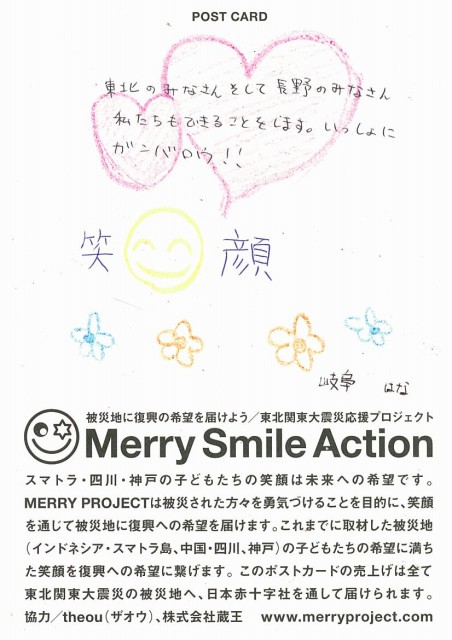 POST CARD
東北のみなさんそして長野のみなさん
私たちもできることをします。いっしょに
ガンバロウ!!
笑顔
岐阜 はな
被災地に復興の希望を届けよう/東北関東大震災応援プロジェクト
Merry Smile Action
スマトラ・四川・神戸の子どもたちの笑顔は未来への希望です。
MERRY PROJECTは被災された方々を勇気づけることを目的に、笑顔
を通じて被災地に復興への希望を届けます。これまでに取材した被災地
(インドネシア・スマトラ島、中国・四川、神戸)の子どもたちの希望に満ち
た笑顔を復興への希望に繋げます。このポストカードの売上げは全て
東北関東大震災の被災地へ、日本赤十字社を通して届けられます。
協力/theou(ザオウ)、株式会社蔵王 www.merryproject.com